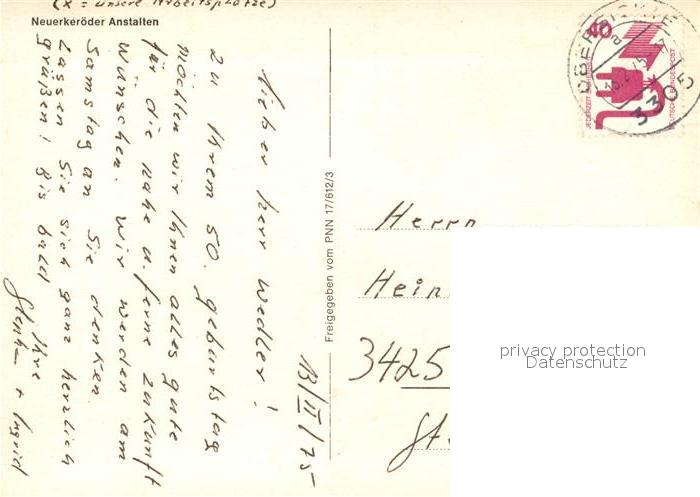 (x = unsere Arbeitsplätze)
Neuerkeröder Anstalten
13/II/75
Lieber Herr Wedler!
Zu Ihrem 50. Geburtstag
möchten wir Ihnen alles gute
für die nahe u. ferne Zukunft
wünschen. Wir werden am
Samstag an Sie denken.
Lassen Sie sich ganz herzlich
grüßen! Bis bald
Ihre
+ Ingrid
Freigegeben vom PNN 17/612/3
40
JEDERZEIT
DEUTSCHE BUNDESPOST
3305
Herrn
Hein
3425
St.
privacy protection
Datenschutz